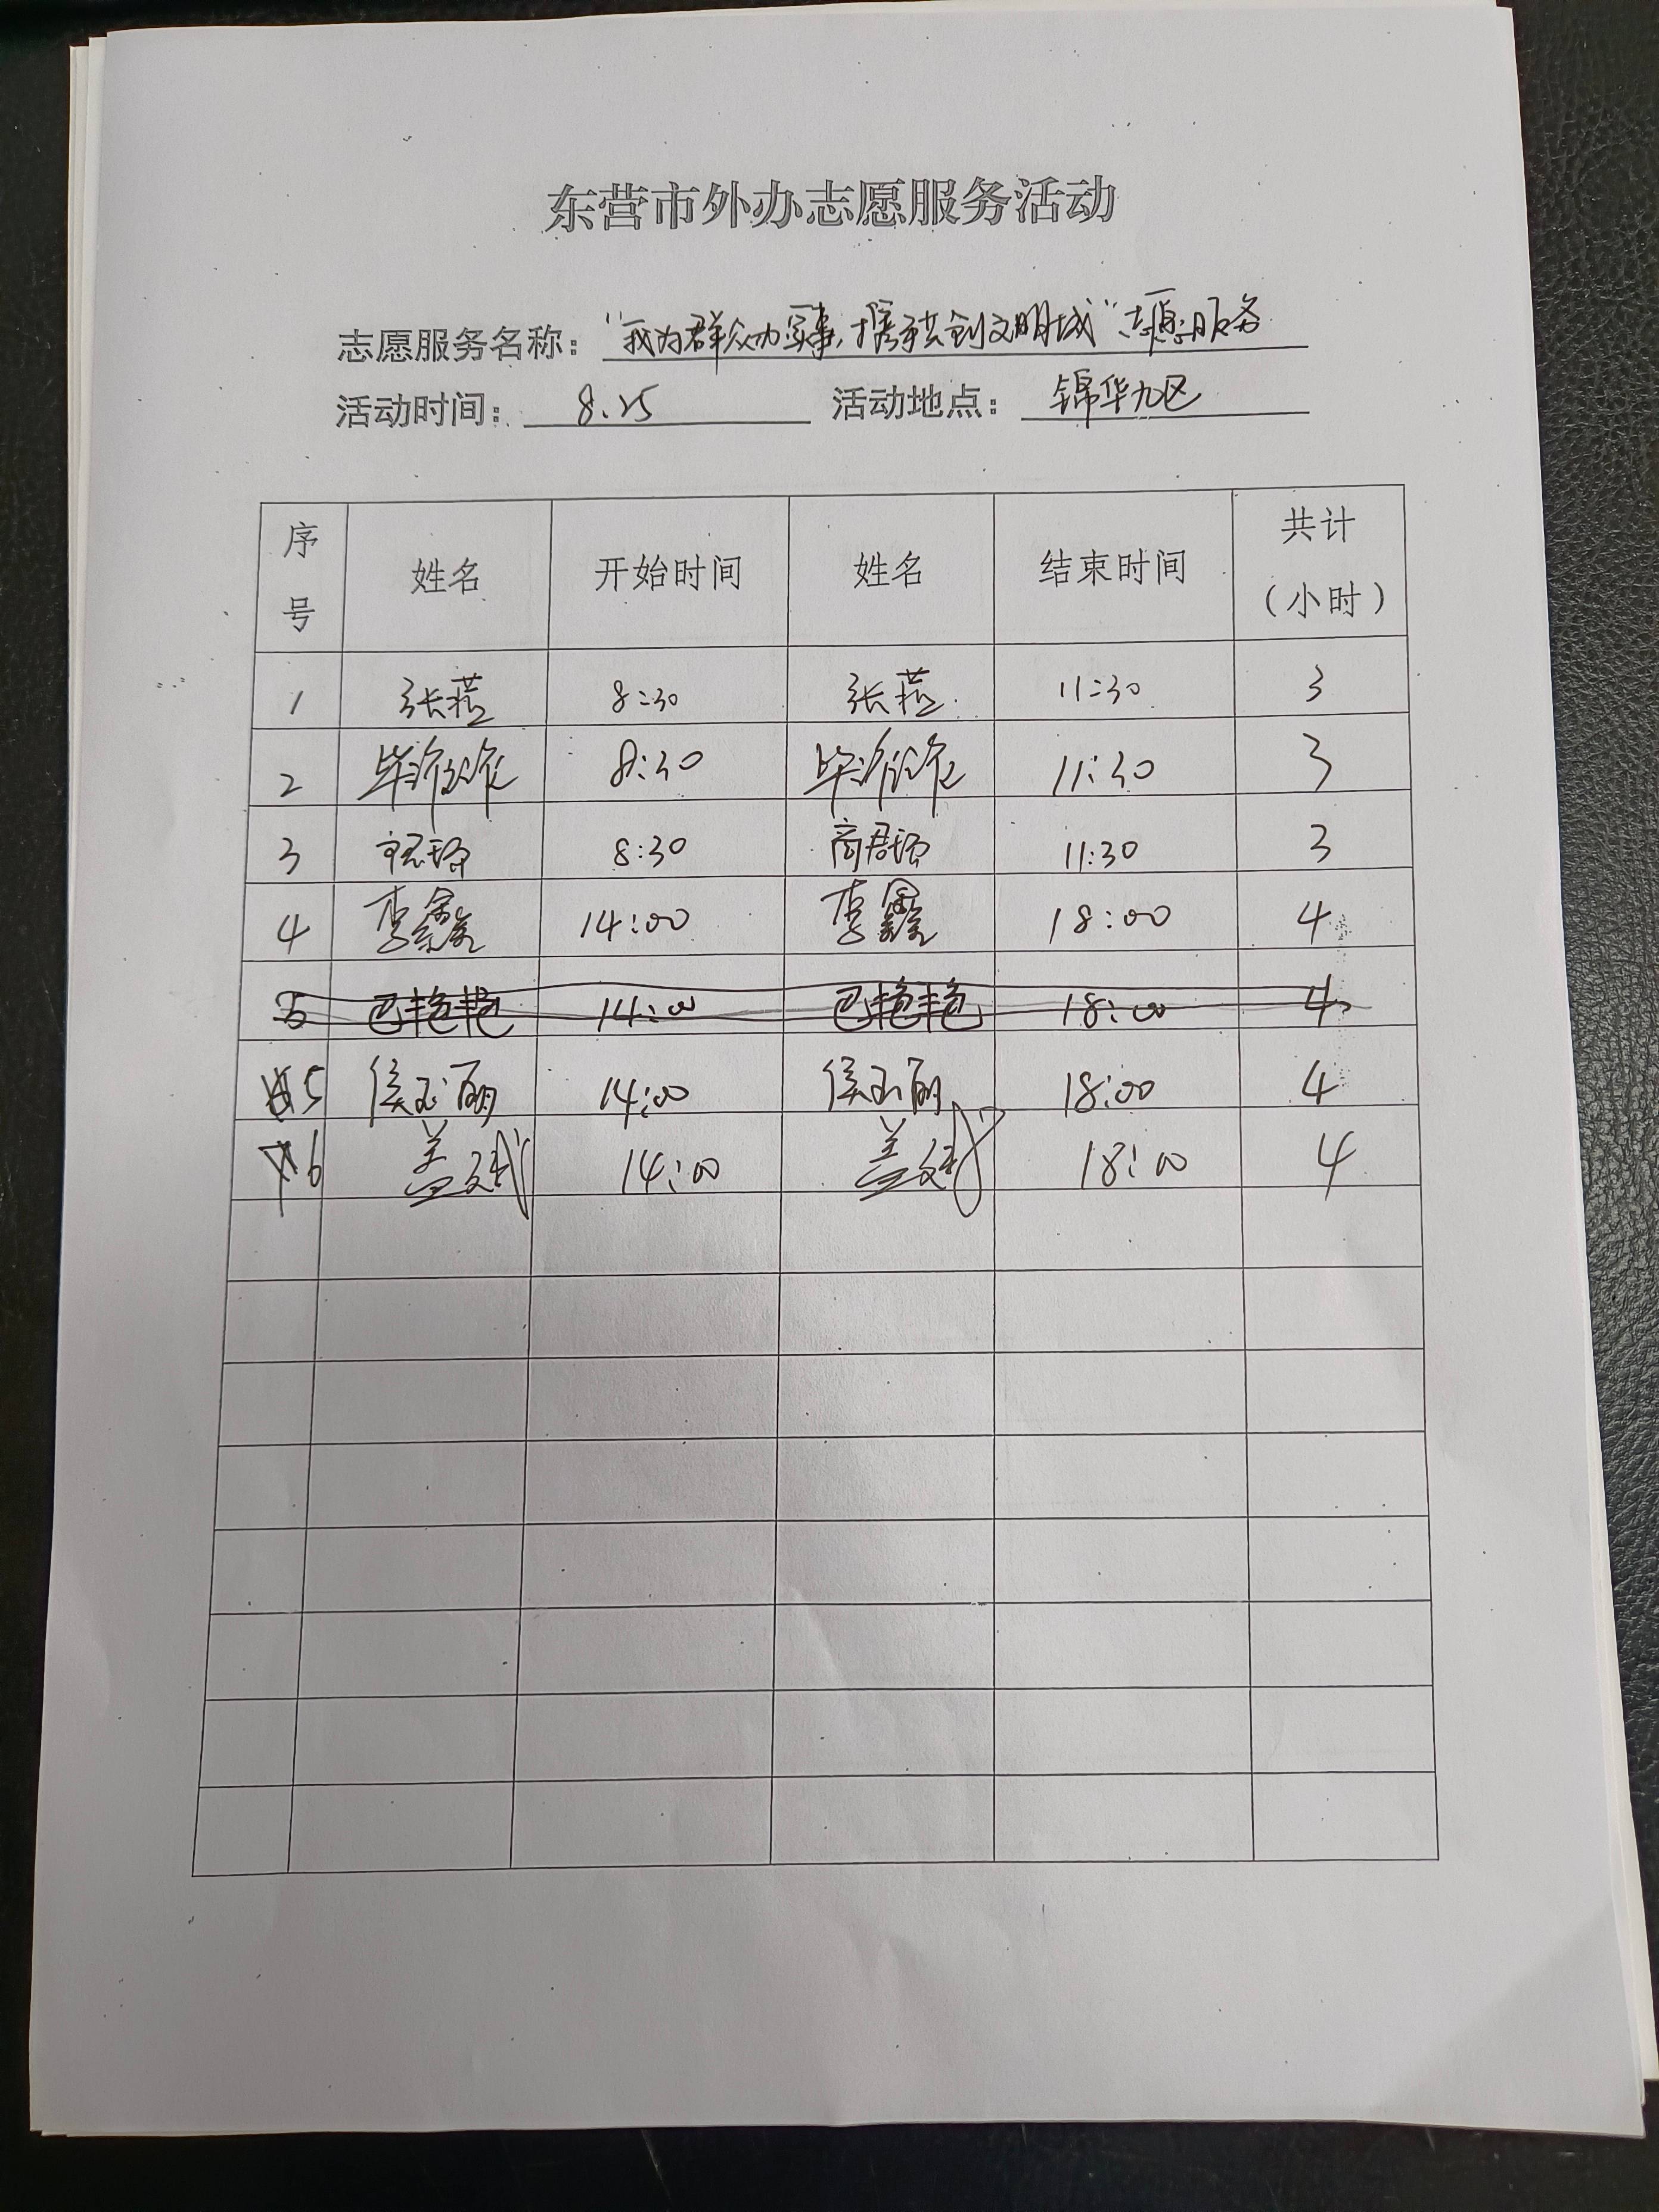 东营市外办志愿服务活动
志愿服务名称："我为群众办实事，携手共创文明城"志愿服务
活动时间：8.25 活动地点：锦华九区
序号 姓名 开始时间 姓名 结束时间 共计（小时）
1 张蕴 8:30 张蕴 11:30 3
2 8:30 11:30 3
3 8:30 商君珂 11:30 3
4 李鑫 14:00 李鑫 18:00 4
5 巴艳艳 14:00 巴艳艳 18:00 4
5 侯玉丽 14:00 侯玉丽 18:00 4
6 盖文斌 14:00 盖文斌 18:00 4